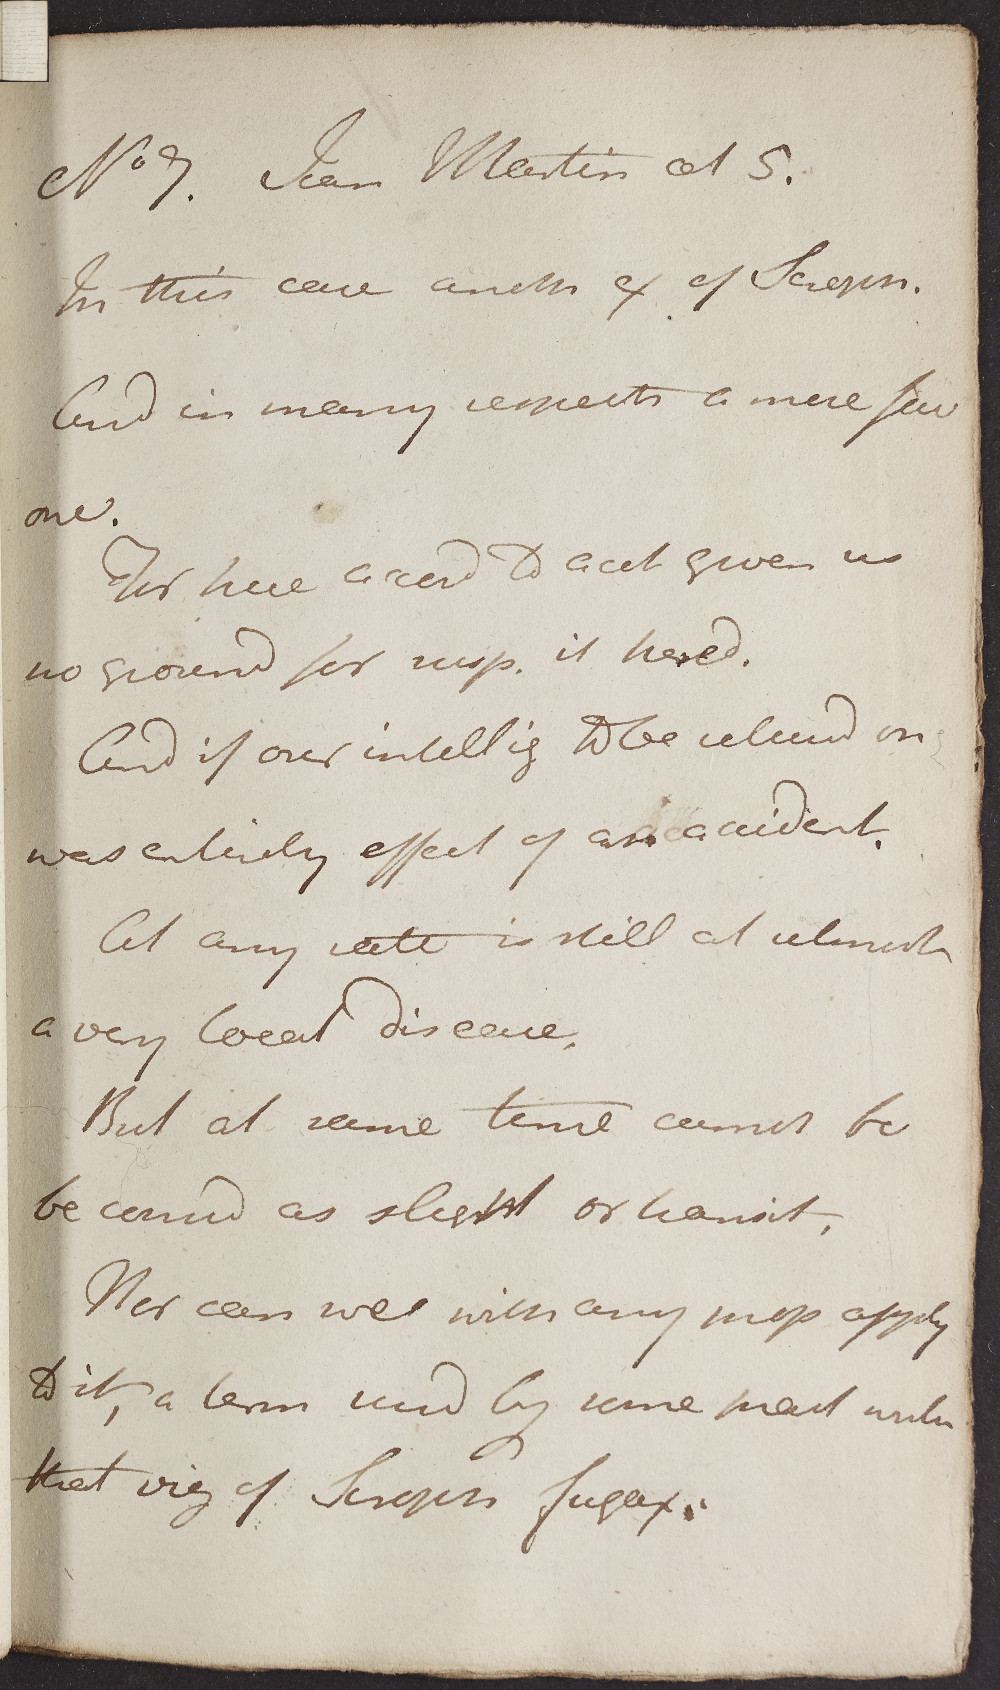 No 7. Jean Martin æt 5.
In this case anoth ex of Scroph.
And in many respects a more fav
one.
For here accord to acct given us
no ground for susp. it hered.
And if our intellig to be relied on
was entirely effect of an accident.
At any rate is still at utmost
a very local disease.
But at same time cannot be
be consid as slight or transit.
Nor can we with any prop apply
to it, a term used by some pract write
that viz of Scroph fugax.